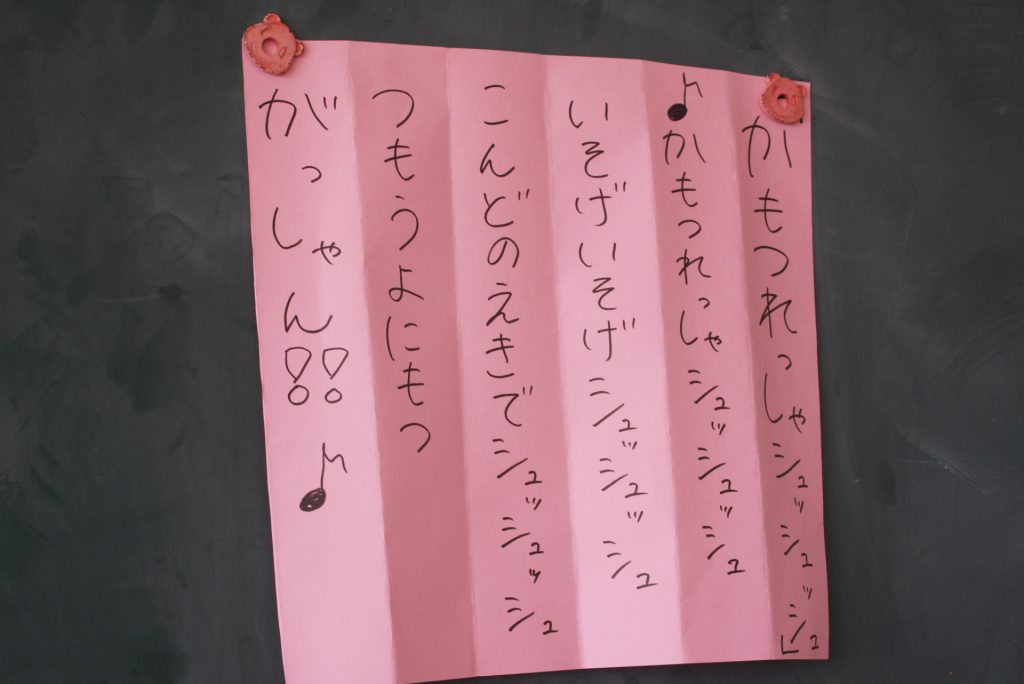 かもつれっしゃシュッシュッシュ」
♪かもつれっしゃシュッシュッシュ
いそげいそげシュッシュッシュ
こんどのえきでシュッシュッシュ
つもうよにもつ
がっしゃん!!♪